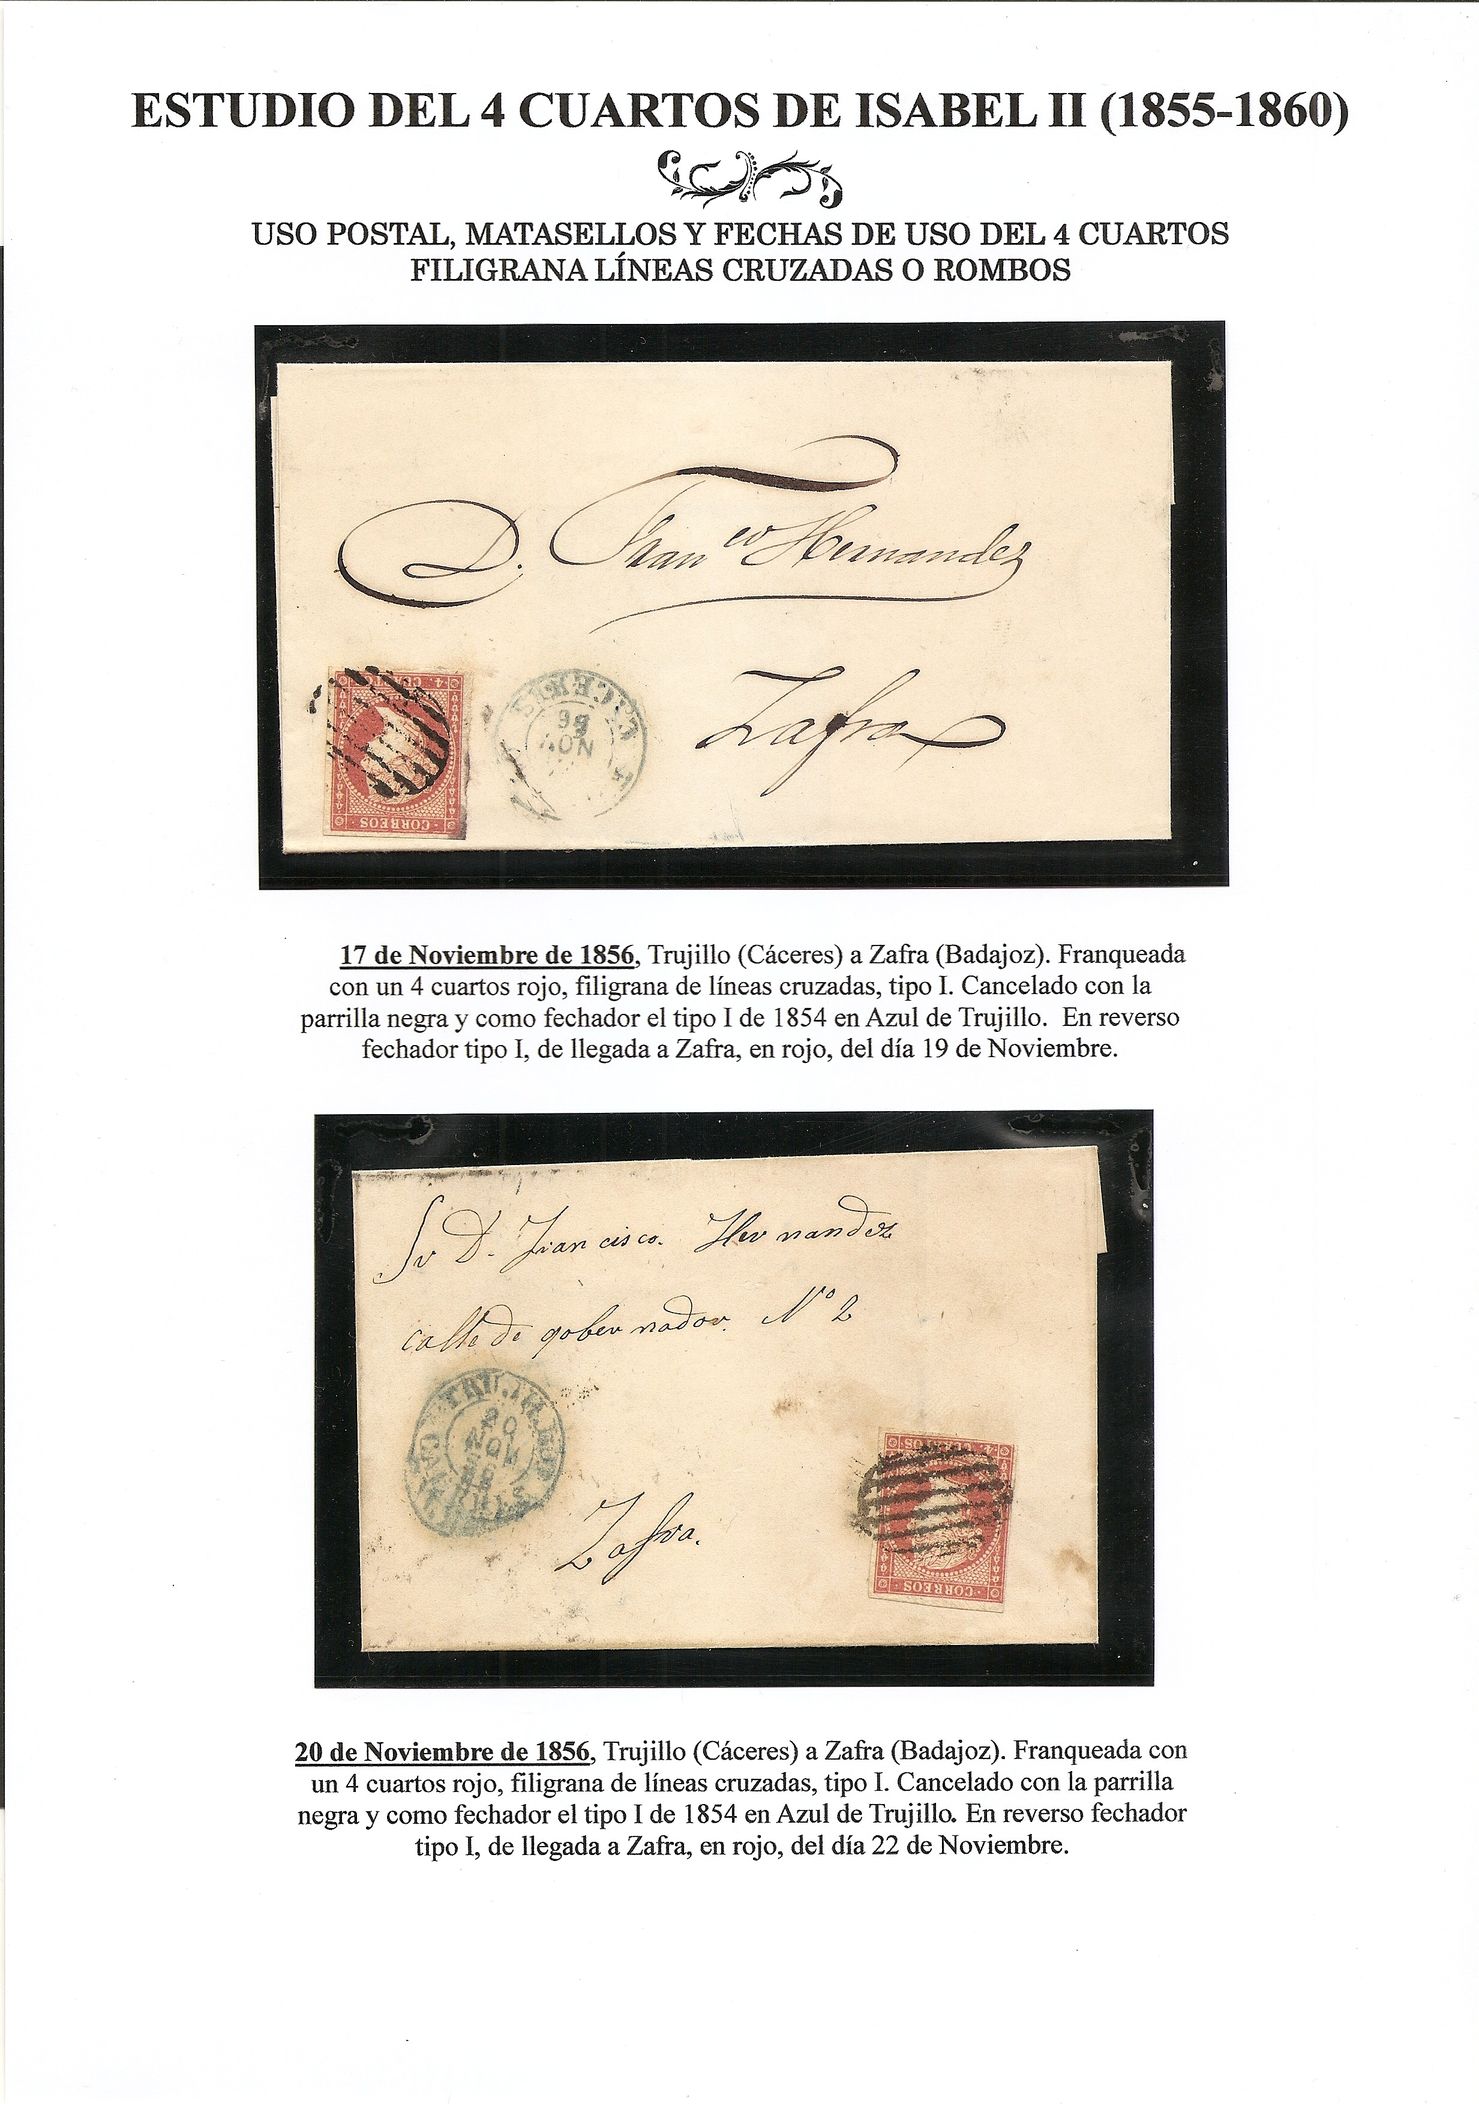 ESTUDIO DEL 4 CUARTOS DE ISABEL II (1855-1860)
USO POSTAL, MATASELLOS Y FECHAS DE USO DEL 4 CUARTOS
FILIGRANA LÍNEAS CRUZADAS O ROMBOS
D. Fran^co Hernandez
Zafra
4 CUARTOS
CORREOS
NOV
17 de Noviembre de 1856, Trujillo (Cáceres) a Zafra (Badajoz). Franqueada
con un 4 cuartos rojo, filigrana de líneas cruzadas, tipo I. Cancelado con la
parrilla negra y como fechador el tipo I de 1854 en Azul de Trujillo. En reverso
fechador tipo I, de llegada a Zafra, en rojo, del día 19 de Noviembre.
Sr D. Francisco Hernandez
calle de gobernador Nº 2
TRUJILLO
20
NOV
Zafra.
4 CUARTOS
CORREOS
20 de Noviembre de 1856, Trujillo (Cáceres) a Zafra (Badajoz). Franqueada con
un 4 cuartos rojo, filigrana de líneas cruzadas, tipo I. Cancelado con la parrilla
negra y como fechador el tipo I de 1854 en Azul de Trujillo. En reverso fechador
tipo I, de llegada a Zafra, en rojo, del día 22 de Noviembre.